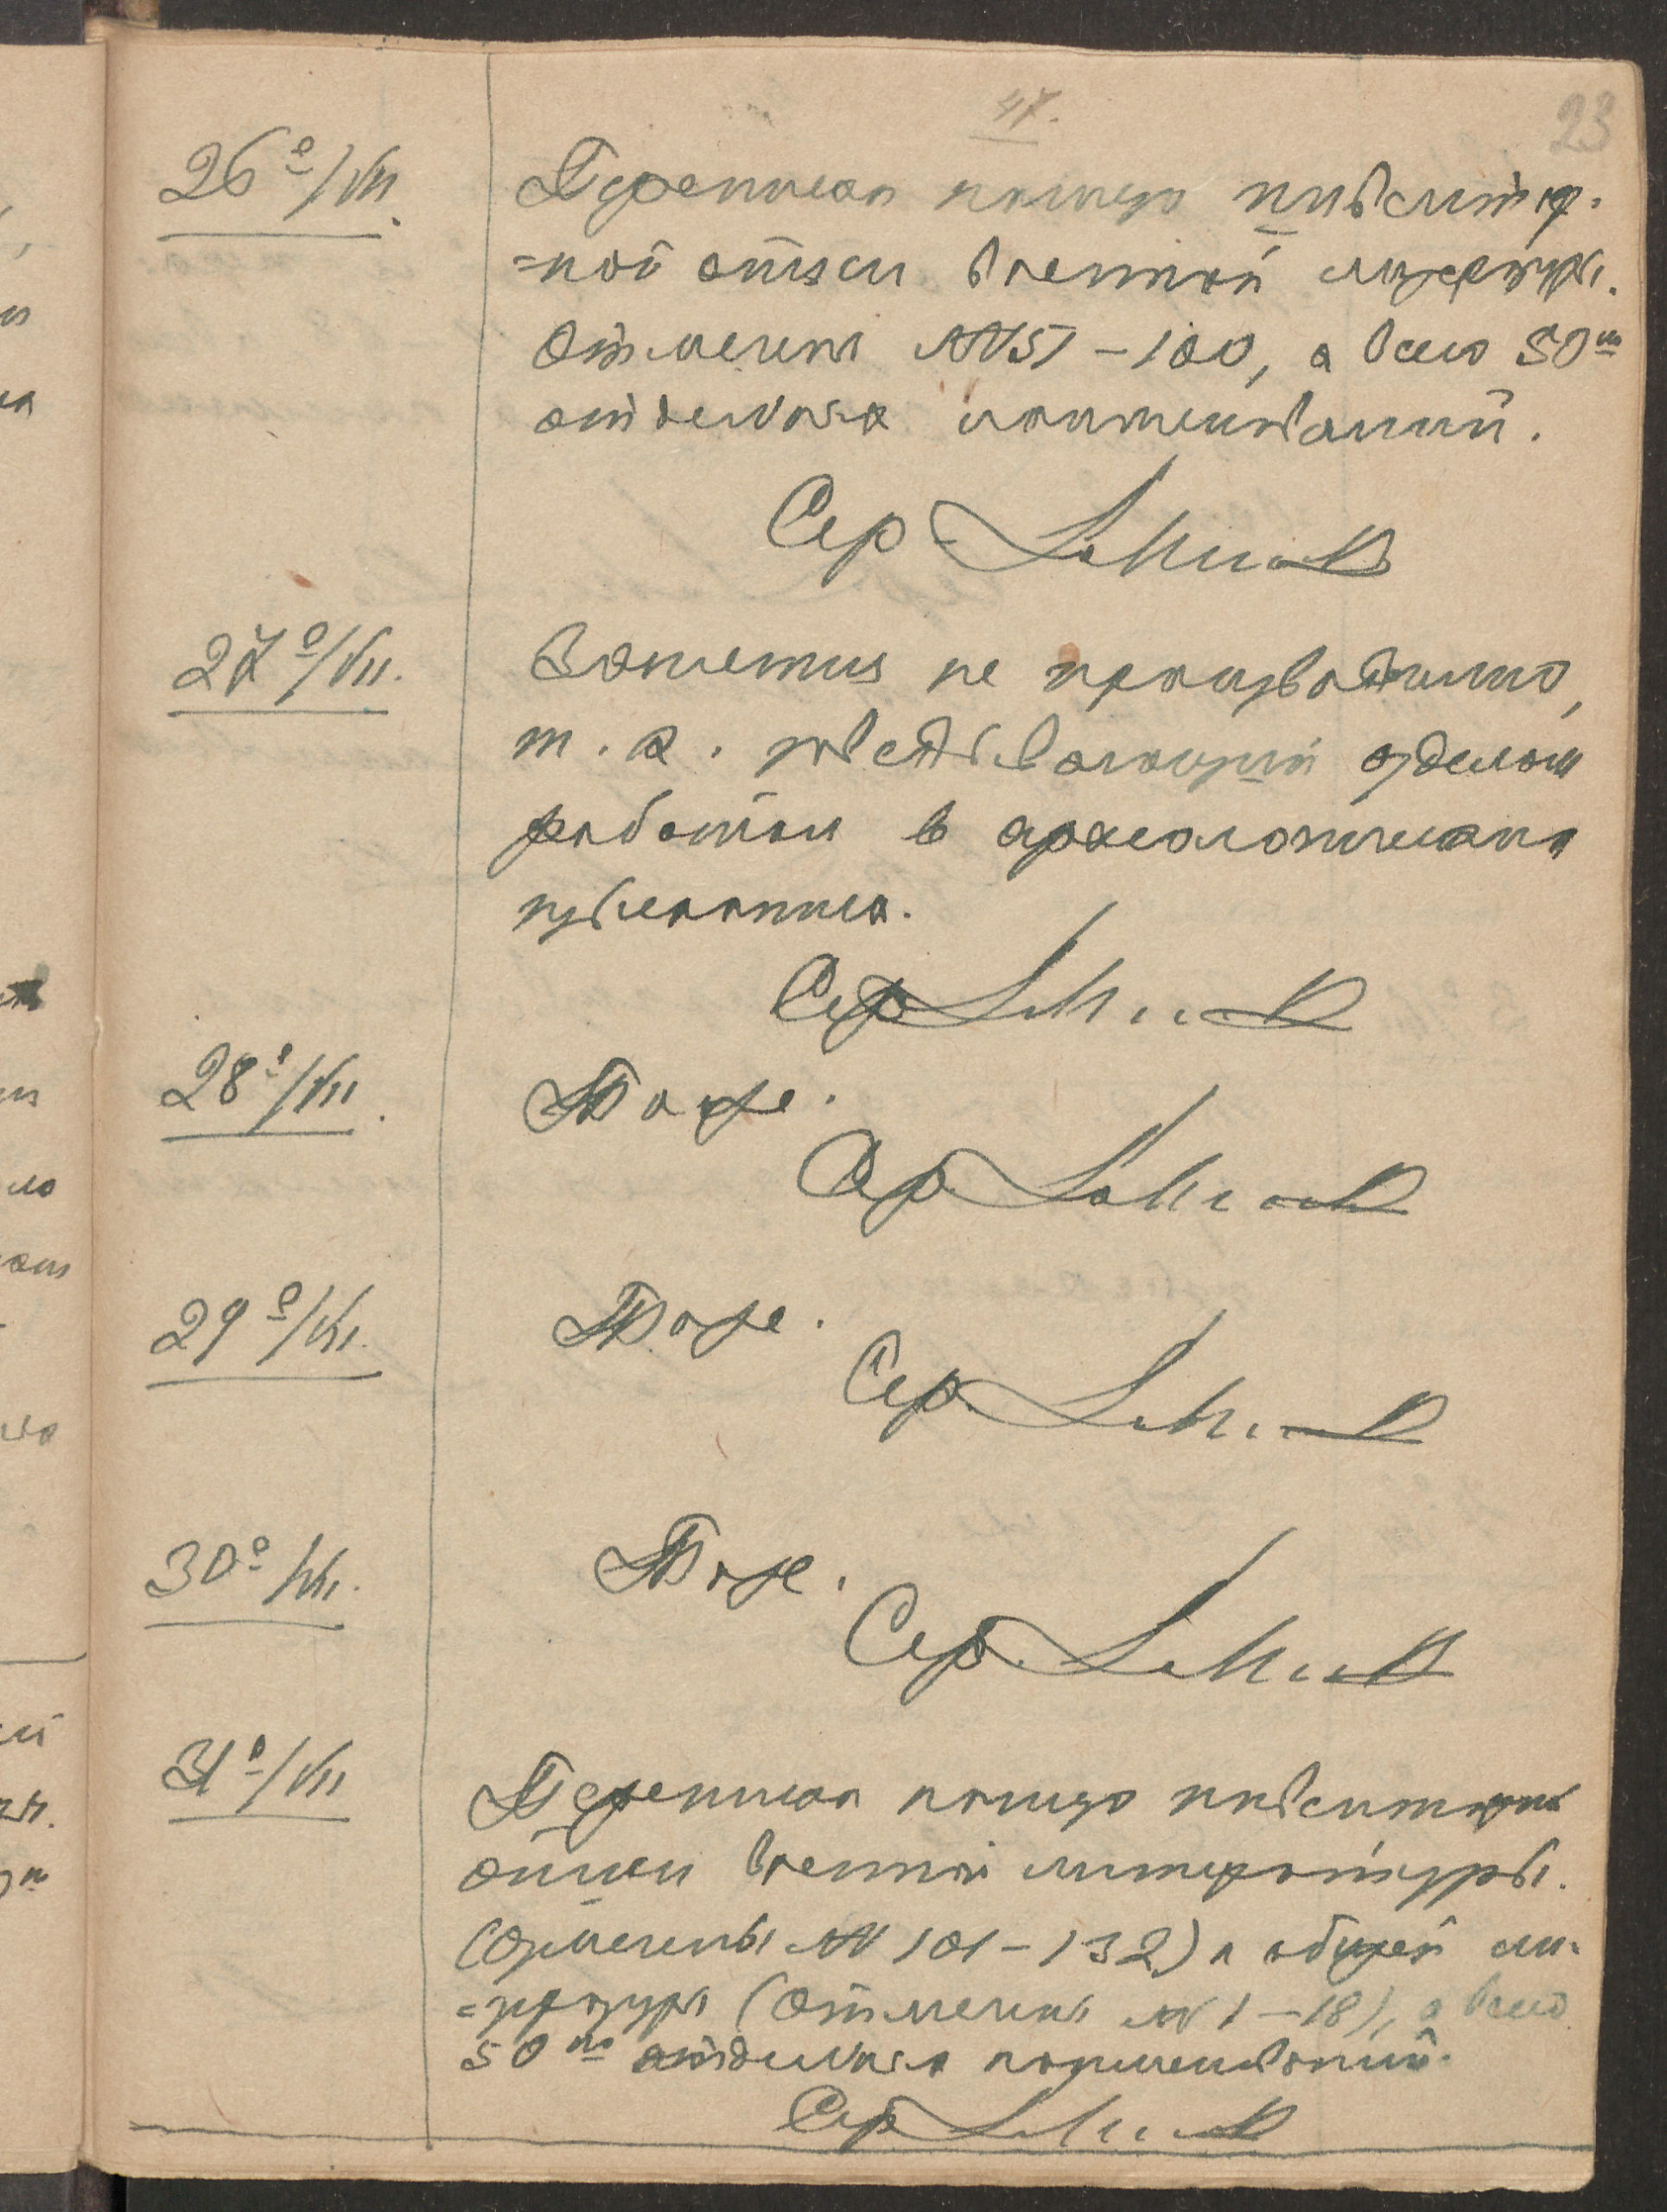 47.
23
26º/VII.
Переписка книги инвентар-
=ной описи военной литератур.
Отмечены №№ 51 – 100, а всего 50ти
отдельных наименований.
Сер
27º/VII.
Занятия не производились,
т. к. заведывающий отделом
работал в археологической
Сер
28º/VII.
Тоже.
Сер
29º/VII.
Тоже.
Сер.
30º/VII.
Тоже.
Сер.
31º/VII
Переписка книги инвентарн
описи военной литературы.
(Отмечены №№ 101 – 132) и общей ли-
=тературы (Отмечены №№ 1 – 18), а всего
50ти отдельных наименований.
Сер